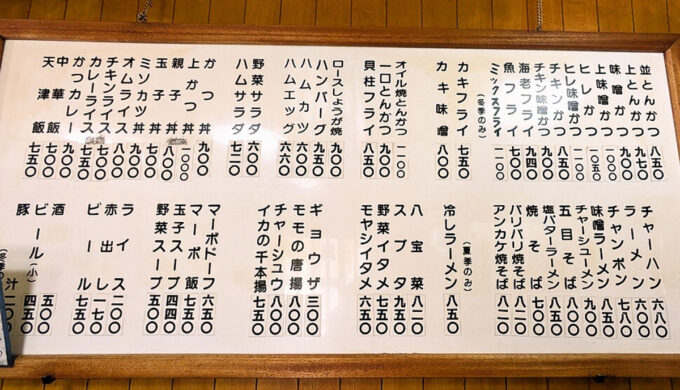 並とんかつ 八五〇
上とんかつ 九七〇
味噌かつ 九〇〇
上味噌かつ
ヒレかつ 一〇五〇
ヒレ味噌かつ
チキンかつ 八五〇
チキン味噌かつ 九〇〇
海老フライ 九四〇
魚フライ 七〇〇
ミックスフライ 一一〇〇
(冬季のみ)
カキフライ 七五〇
カキ味噌 八〇〇
オイル焼とんかつ 一一〇〇
一口とんかつ 九〇〇
貝柱フライ 八五〇
ロースしょうが焼 九〇〇
ハンバーグ 九五〇
ハムカツ 六六〇
ハムエッグ 六六〇
野菜サラダ 六〇〇
ハムサラダ 七二〇
かつ丼 九〇〇
上かつ丼 一〇〇〇
親子丼
玉子丼 七五〇
ミソカツ丼
オムライス 八五〇
チキンライス
カレーライス 七五〇
かつカレー 九〇〇
中華飯 七五〇
天津飯 七五〇
チャーハン 六八〇
ラーメン 六〇〇
チャンポン 七八〇
味噌ラーメン
チャーシューメン 九〇〇
五目そば 八〇〇
塩バターラーメン 七五〇
焼そば 七五〇
バリバリ焼そば 八二〇
アンカケ焼そば 八二〇
(夏季のみ)
冷しラーメン 八五〇
八宝菜 八二〇
スブタ 九五〇
野菜イタメ 七五〇
モヤシイタメ 五五〇
ギョウザ 三〇〇
モモの唐揚 八〇〇
チャーシュウ 八〇〇
イカの千本揚 七五〇
マーボドーフ 六五〇
マーボ飯 七五〇
玉子スープ 四四〇
野菜スープ 五五〇
ライス 二〇〇
赤出し 一七〇
ビール 七五〇
酒 五〇〇
ビール(小) 四五〇
豚汁 二〇〇